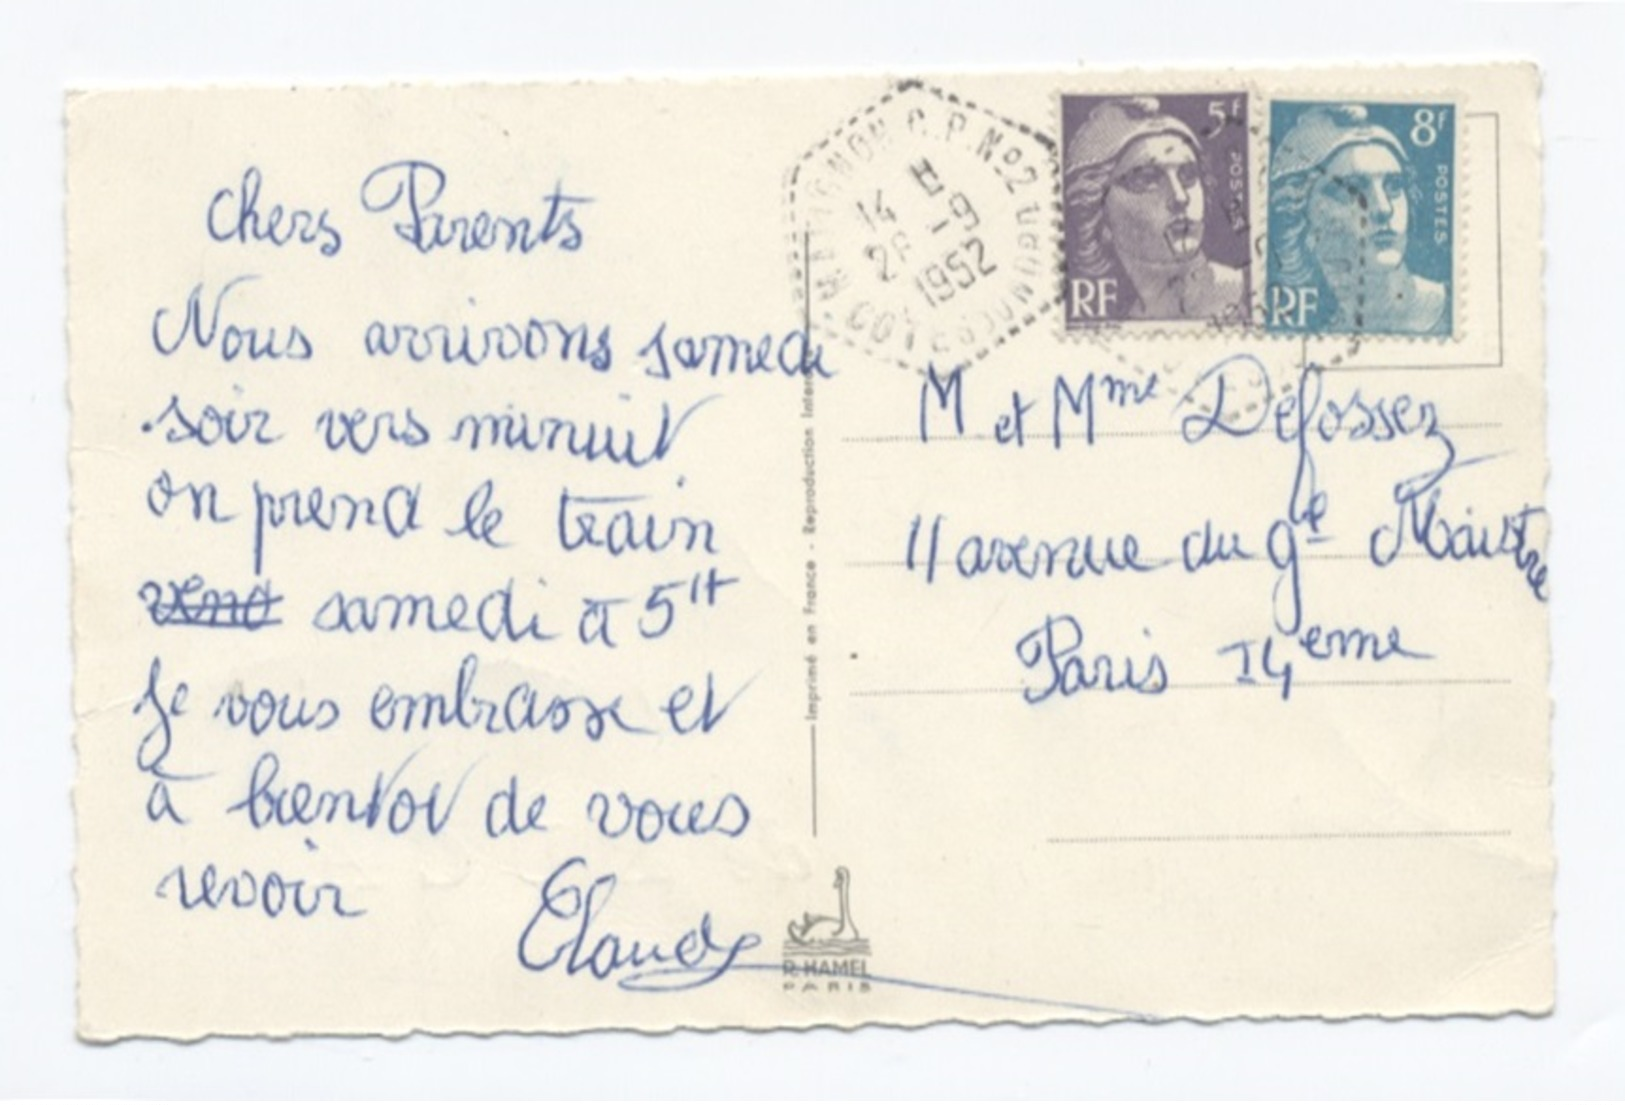 chers Parents
Nous arrivons samedi
soir vers minuit
on prend le train
samedi à 5H
Je vous embrasse et
à bientot de vous
revoir
Claude
Imprimé en France - Reproduction Inter
R. HAMEL
PARIS
MATIGNON C.P. No2
14 H
28 -9
1952
COTES DU NORD
5f
POSTES
RF
8f
POSTES
RF
M et Mme Defossez
11 avenue du gle Maistre
Paris 14eme